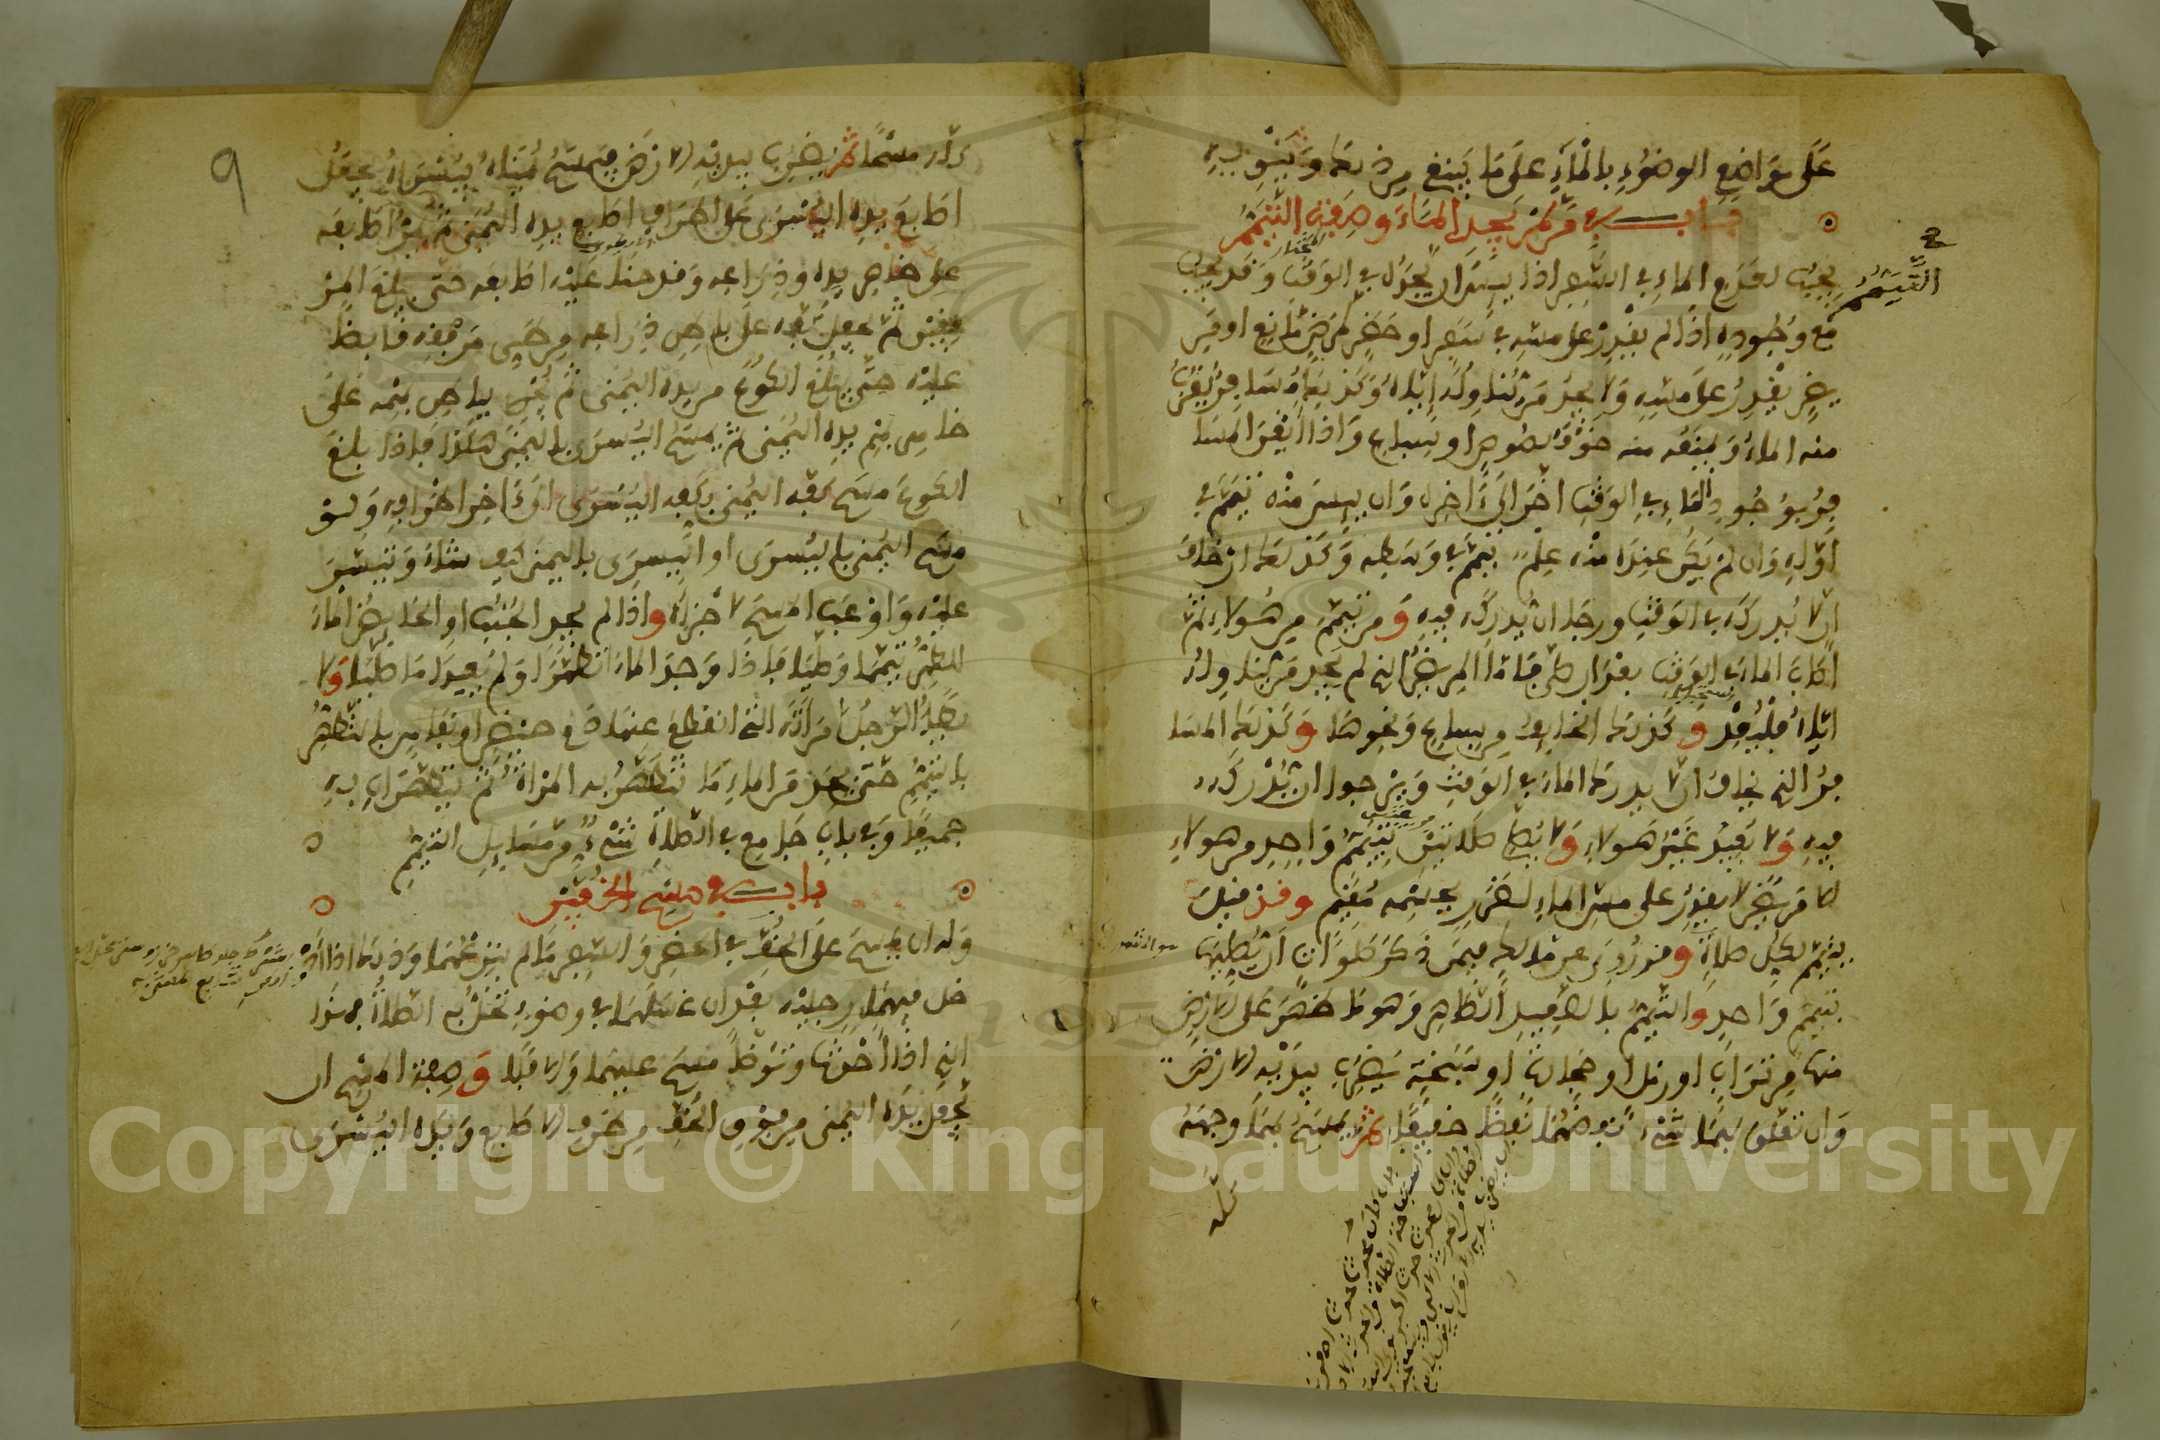 عَلَى مَوَاضِعِ الوضُوءِ بِالْمَاءِ عَلَى مَا يَنبغِي مِن ذلك وَيَنْوِي به
باب في مَن لم يَجِدِ المَاءَ وصِفةِ التَّيَمُّم
يجب لعدم الماء في السَّفر اذا يَيِسَ ان يَجِدَه في الوقت وقد يجب
التَّيَمُّم
مع وُجُودِه اذا لم يقْدِرْ على مسّه في سَفر او حَضَر لمرض مانع او مَر
يض يقدِر على مسّه وَلا يجد مَن يناوله إياه وكذلك مسافر يقرب
منه الماء ويمنعه منه خوْف لصوص او سباع وَاذا ايقن المسا
فر بوجُود الماء في الوقت اخّر الى ءاخره وان يَيِسَ منه تيمّم في
اوّله وان لم يكن عنده منه علم تيمّم في وسطه وكذلك ان خاف
ان لا يُدركه في الوقت ورجا ان يدركه فيه وَ من تيمّم من هؤلاء ثم
اصاب الماء في الوقت بعد ان صلى فاما المريض الذي لم يجد من يناوله
اياه فليعد وَ كذلك الخايف من سباع ونحوها وَ كذلك المسا
فر الذي يخاف ان لا يدرك الماء في الوقت ويرجوا ان يدركه
فيه وَلا يعيد غير هؤلاء وَلا يصلي صلاتين بتيمّم واحد من هولاء
الا مريض لا يقدر على مسّ الماء لضرر بجسمه مقيم وقد قيل
يتيمّم لكل صلاة وقد رُوي عن مالك فيمن ذكر صلوات ان يصليها
بتيمّم واحد والتيمم بالصعيد الطاهر وهو ما ظهر على الارض
منها من تراب او رمل او حجارة او سبخة يضرب بيديه الارض
وان تعلق بهما شيء نفضهما نفضا خفيفا ثم يمسح بهما وجهه
كلّه
كلّه مسْحًا ثم يضرب بيديه الارض فيمسح يمناه بيسراه يجعل
اصابع يده اليسرى على اطراف اصابع يده اليمنى ثم يمر اصابعه
على ظاهر يده وذراعه وقد حنا عليه اصابعه حتى يبلغ المر
فقين ثم يجعل كفه على باطن ذراعه من طي مرفقه قابضا
عليه حتى يبلغ الكوع من يده اليمنى ثم يجري باطن بهمه على
ظاهر بهم يده اليمنى ثم يمسح اليسرى باليمنى هكذا فاذا بلغ
الكوع مسح كفه اليمنى بكفه اليسرى الى ءاخر اطرافه ولو
مسح اليمنى باليسرى او اليسرى باليمنى كيف شاء وتيسر
عليه واوعب المسح لاجزأه واذا لم يجد الجنب او الحايض الماء
للطهر تيمما وصليا فاذا وجدا الماء تطهرا ولم يعيدا ما صليا ولا
يطأ الرجل امرأته التي انقطع عنها دم حيض او نفاس بالتطهر
بالتيمم حتى يجد من الماء ما تتطهر به المرأة ثم يتطهران به
جميعا وفي باب جامع في الصلاة شيء من مسايل التيمم
باب في مسح الخفين
وله ان يمسح على الخفين في الحضر والسفر ما لم ينزعهما وذلك اذا اد
خل فيهما رجليه بعد ان غسلهما في وضوء تحل به الصلاة فهذا
الذي اذا احدث وتوضأ مسح عليهما والا فلا وَ صفة المسح ان
يجعل يده اليمنى من فوق الخف من طرف الاصابع ويده اليسرى
Copyright © King Saud University